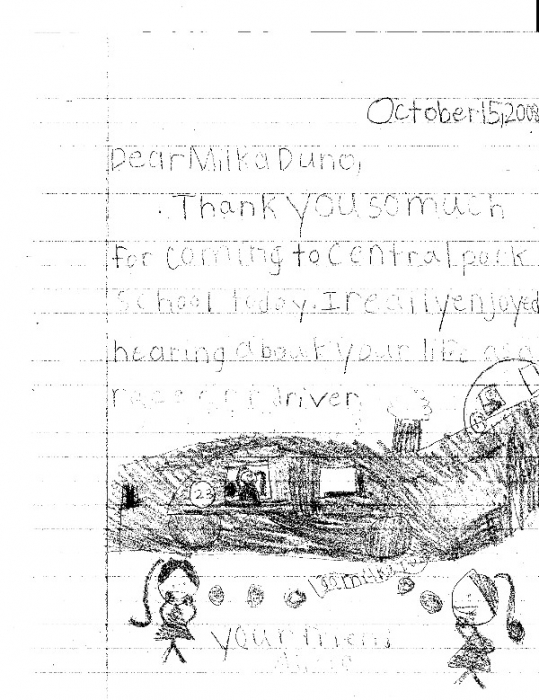 October 15, 2008
Dear Milka Duno,
Thank you so much
for coming to Central park
School today. I really enjoyed
hearing about your life as a
race car driver.
23
your friend